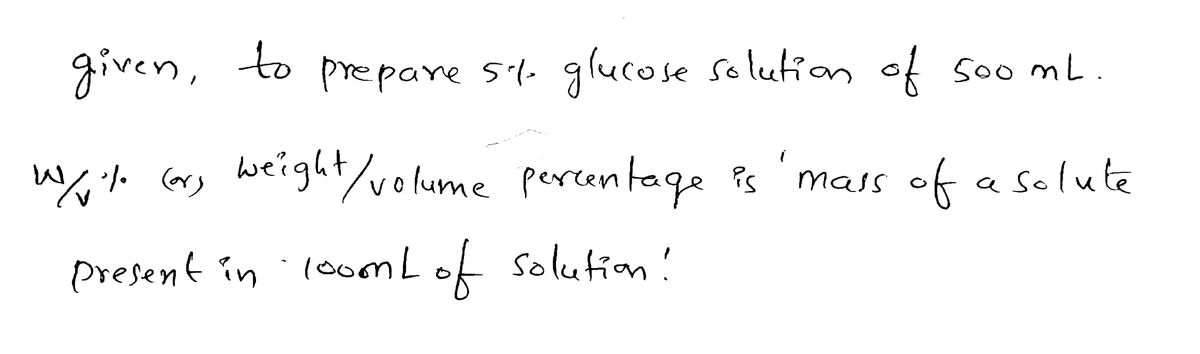 given, to prepare 5% glucose solution of 500 mL.
W/v % (or) weight/volume percentage is 'mass of a solute
present in 100mL of solution'